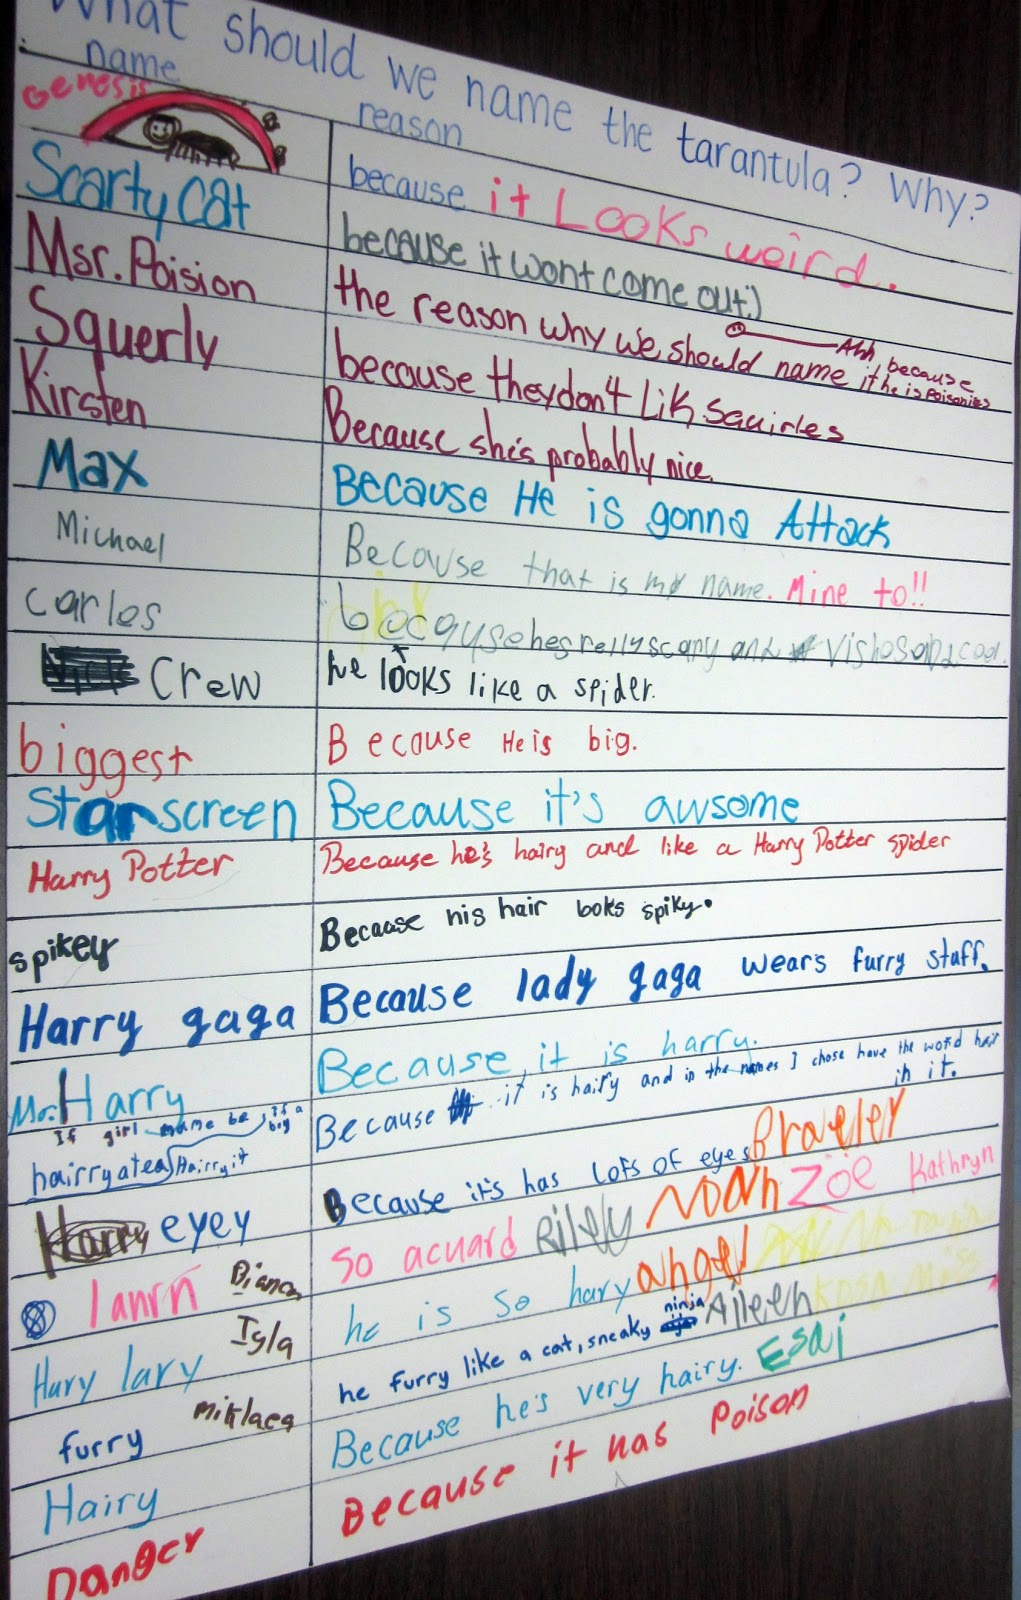 What should we name the tarantula? Why?
name reason
Genesis because it Looks weird.
Scarty cat because it wont come out:)
Msr. Poision the reason why we should name it Ahh because he is Poisonies
Squerly because they don't Lik squirles
Kirsten Because she's probably nice.
Max Because He is gonna Attack
Michael Because that is my name. Mine to!!
carles becquse hes relly scary and cool.
Crew he looks like a spider.
biggest Because He is big.
Starscreen Because it's awsome
Harry Potter Because he's hairy and like a Harry Potter spider
spikey Because his hair looks spiky.
Harry gaga Because lady gaga wears furry stuff.
Mr. Harry Because it is harry.
If girl name be if a big
hairryatea Hairryit Because it is hairy and in the names I chose have the word hair in it.
Harry eyey Because it's has Lots of eyes Braeley
Ianrn Bianca so acuard Riley Noah Zöe Kathryn
Hary lary Isla he is so hary angel
furry Miklaea he furry like a cat, sneaky ninja Aileen
Hairy Because he's very hairy. Esai
Danger Because it has Poison